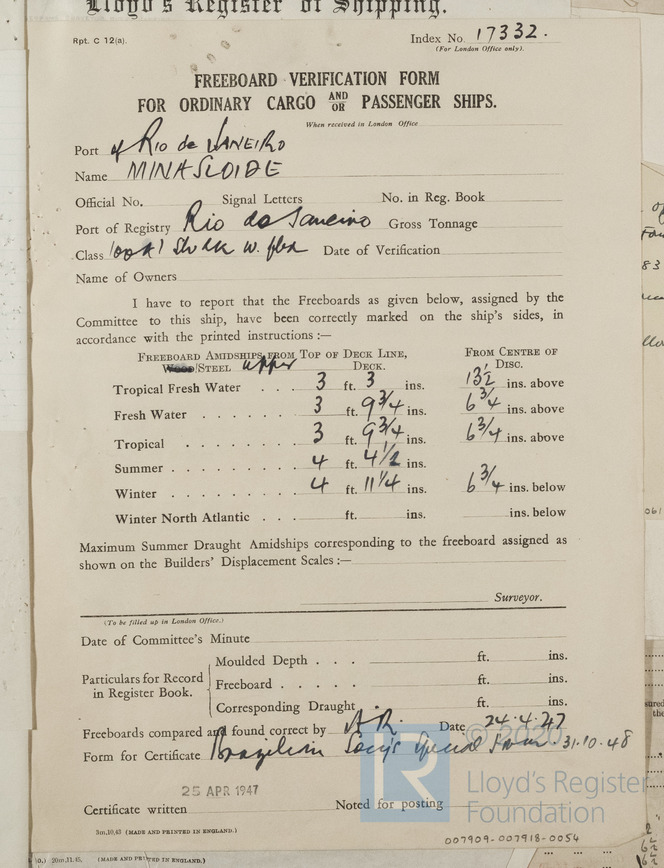 Lloyd's Register of Shipping.
Rpt. C 12(a).
Index No. 17332.
(For London Office only).
FREEBOARD VERIFICATION FORM
FOR ORDINARY CARGO AND OR PASSENGER SHIPS.
When received in London Office
Port of Rio de JANEIRO
Name MINASLOIDE
Official No. Signal Letters No. in Reg. Book
Port of Registry Rio de Janeiro Gross Tonnage
Class 100A1 w. Date of Verification
Name of Owners
I have to report that the Freeboards as given below, assigned by the
Committee to this ship, have been correctly marked on the ship's sides, in
accordance with the printed instructions :—
FREEBOARD AMIDSHIPS FROM TOP OF DECK LINE, FROM CENTRE OF
WOOD/STEEL upper DECK. DISC.
Tropical Fresh Water . . . 3 ft. 3 ins. 13½ ins. above
Fresh Water . . . . . . 3 ft. 9¾ ins. 6¾ ins. above
Tropical . . . . . . . 3 ft. 9¾ ins. 6¾ ins. above
Summer . . . . . . . . 4 ft. 4½ ins.
Winter . . . . . . . . 4 ft. 11¼ ins. 6¾ ins. below
Winter North Atlantic . . . ft. ins. ins. below
Maximum Summer Draught Amidships corresponding to the freeboard assigned as
shown on the Builders' Displacement Scales :—
Surveyor.
(To be filled up in London Office.)
Date of Committee's Minute
Particulars for Record in Register Book.
Moulded Depth . . . ft. ins.
Freeboard . . . . . ft. ins.
Corresponding Draught ft. ins.
Freeboards compared and found correct by A.R. Date 24.4.47
Form for Certificate Brazilian Special 31.10.48
25 APR 1947
Certificate written Noted for posting
3m,10,45 (MADE AND PRINTED IN ENGLAND.)
20m,11.45. (MADE AND PRINTED IN ENGLAND.)
© 2020
LR
Lloyd's Register
Foundation
007909-007918-0054